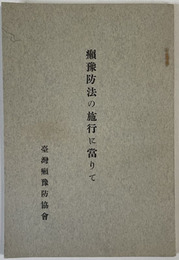 癩豫防法の施行に當りて
臺灣癩豫防協會